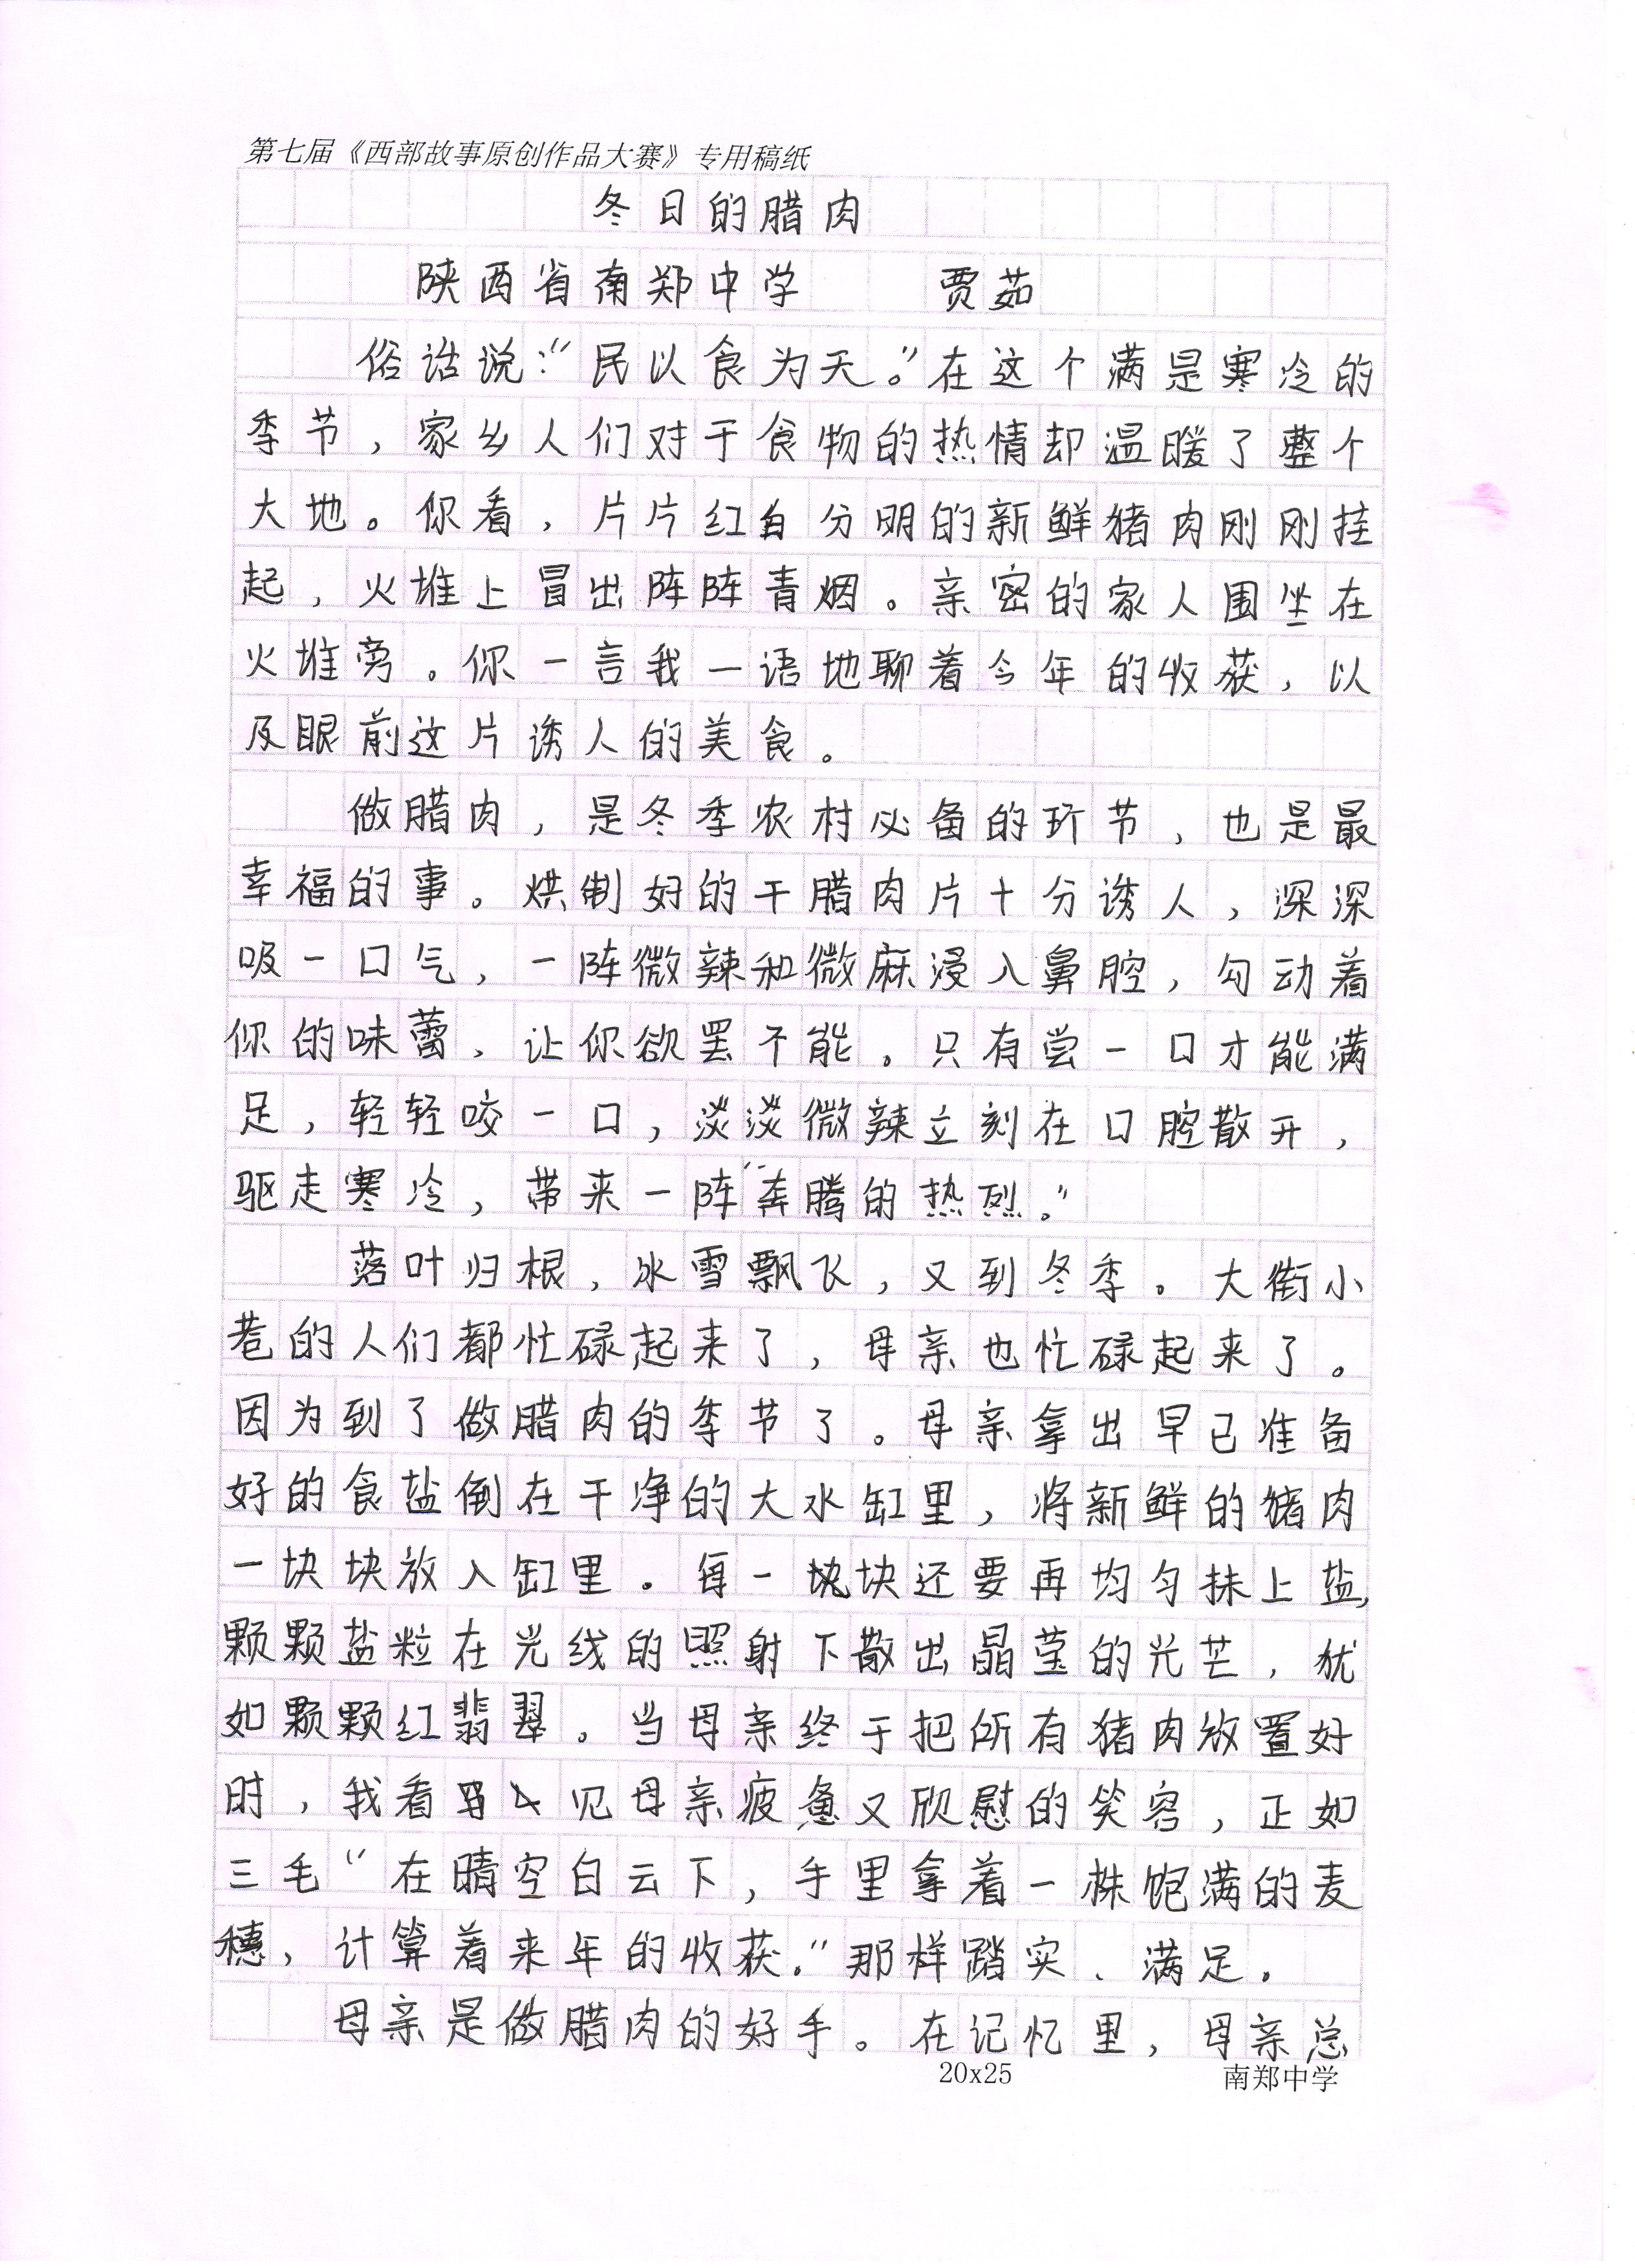 第七届《西部故事原创作品大赛》专用稿纸
冬日的腊肉
陕西省南郑中学 贾茹
俗话说:“民以食为天。”在这个满是寒冷的
季节,家乡人们对于食物的热情却温暖了整个
大地。你看,片片红白分明的新鲜猪肉刚刚挂
起,火堆上冒出阵阵青烟。亲密的家人围坐在
火堆旁。你一言我一语地聊着今年的收获,以
及眼前这片诱人的美食。
做腊肉,是冬季农村必备的环节,也是最
幸福的事。烘制好的干腊肉片十分诱人,深深
吸一口气,一阵微辣和微麻浸入鼻腔,勾动着
你的味蕾,让你欲罢不能。只有尝一口才能满
足,轻轻咬一口,淡淡微辣立刻在口腔散开,
驱走寒冷,带来一阵“奔腾的热烈。”
落叶归根,冰雪飘飞,又到冬季。大街小
巷的人们都忙碌起来了,母亲也忙碌起来了。
因为到了做腊肉的季节了。母亲拿出早已准备
好的食盐倒在干净的大水缸里,将新鲜的猪肉
一块块放入缸里。每一块块还要再均匀抹上盐,
颗颗盐粒在光线的照射下散出晶莹的光芒,犹
如颗颗红翡翠。当母亲终于把所有猪肉放置好
时,我看见母亲疲惫又欣慰的笑容,正如
三毛“在晴空白云下,手里拿着一株饱满的麦
穗,计算着来年的收获。”那样踏实、满足。
母亲是做腊肉的好手。在记忆里,母亲总
20x25 南郑中学